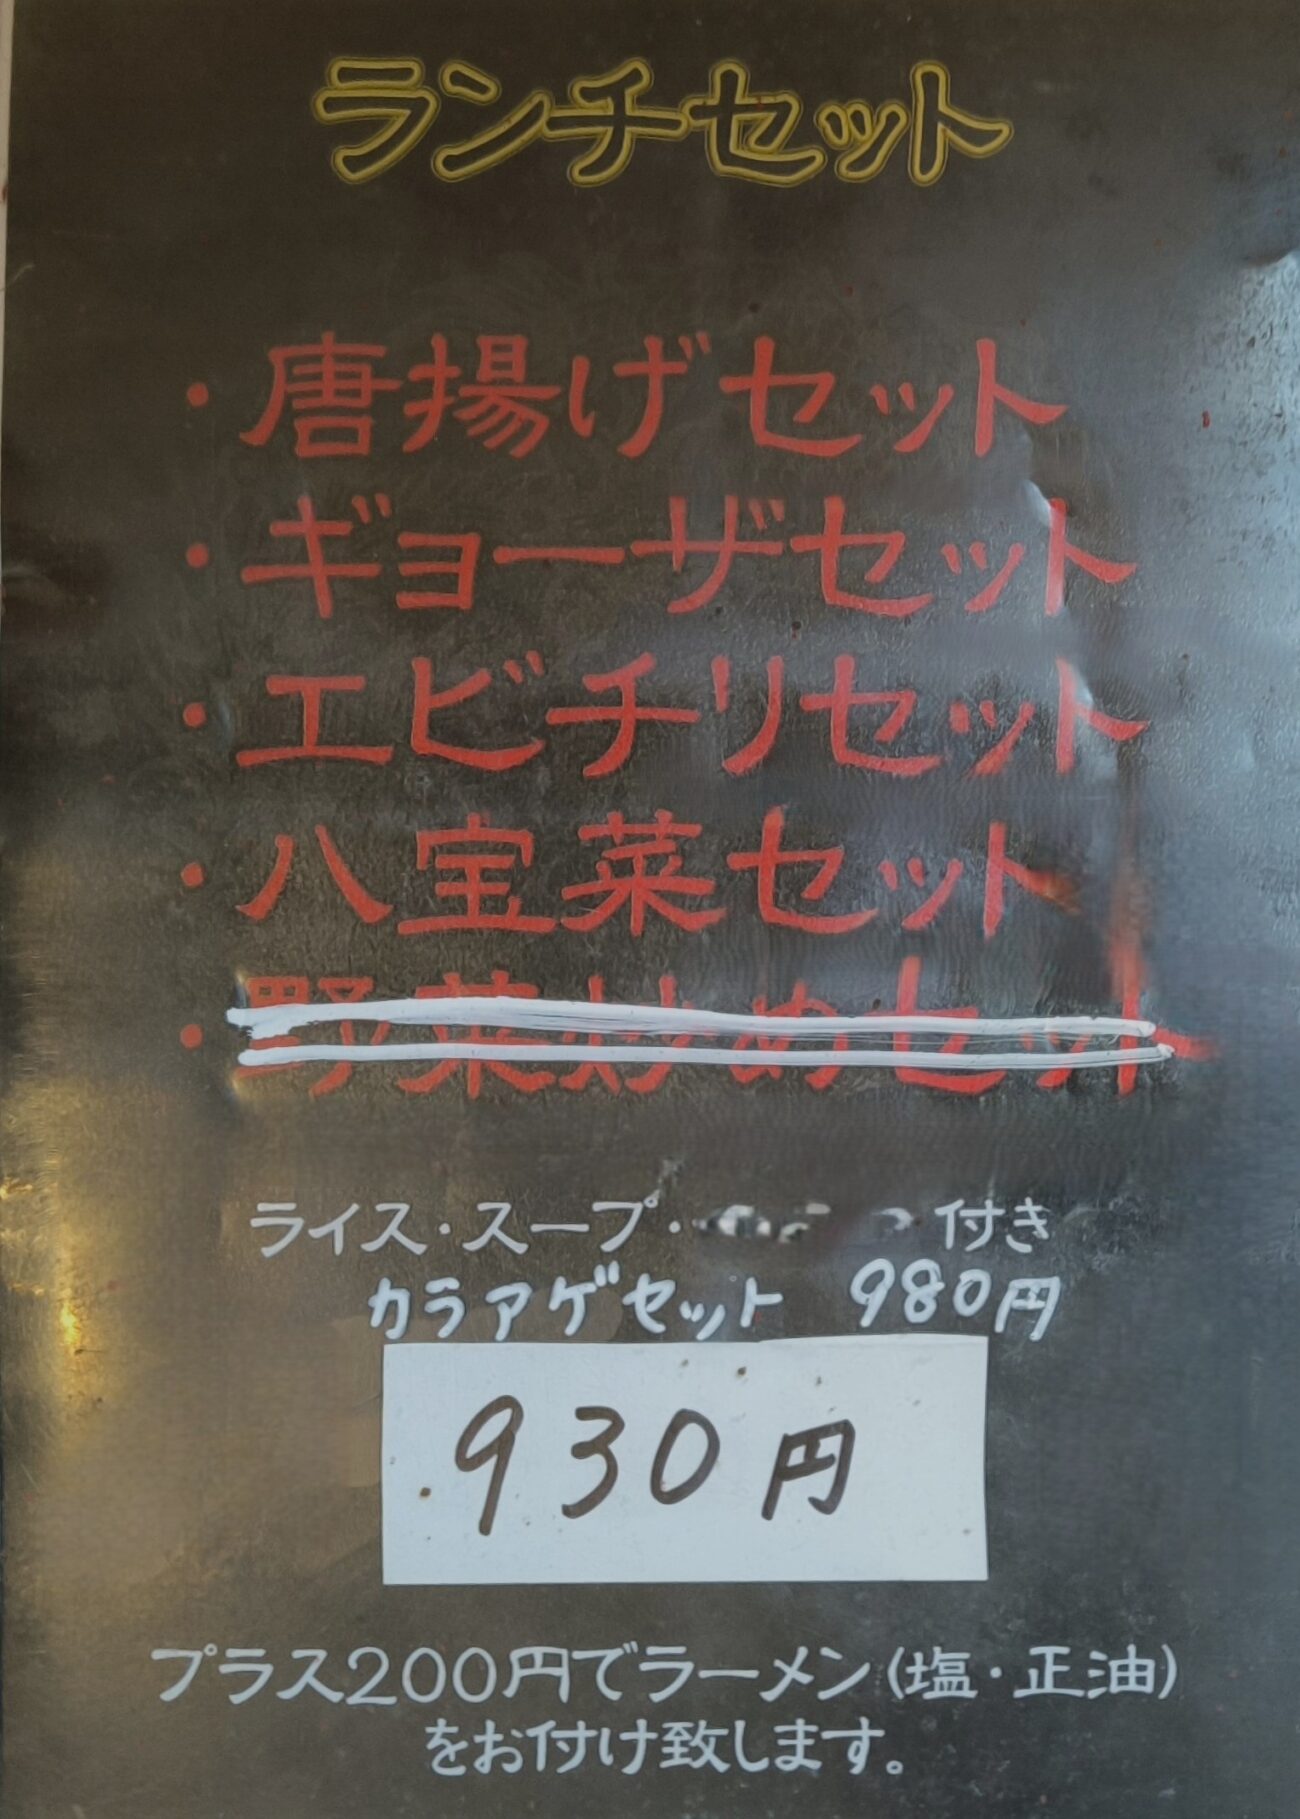 ランチセット
・唐揚げセット
・ギョーザセット
・エビチリセット
・八宝菜セット
・野菜炒めセット
ライス・スープ・ 付き
カラアゲセット 980円
930円
プラス200円でラーメン(塩・正油)
をお付け致します。